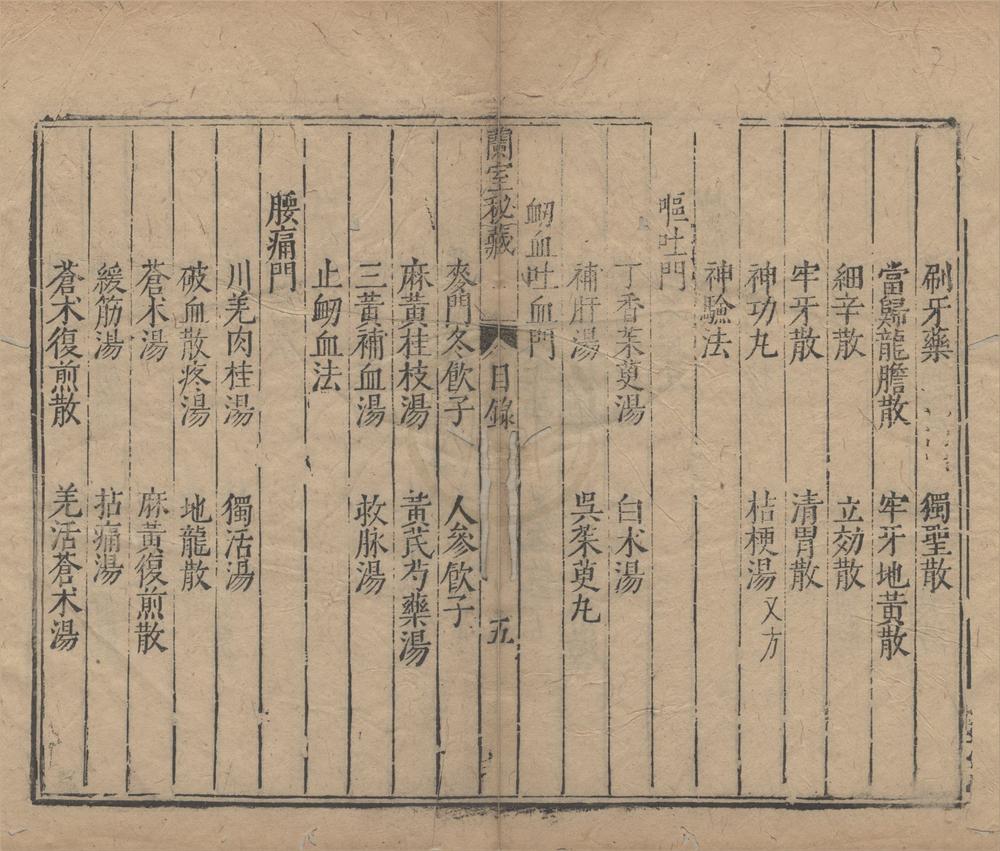 刷牙藥　獨聖散
當歸龍膽散　牢牙地黃散
細辛散　立効散
牢牙散　清胃散
神功丸　桔梗湯又方
神驗法
嘔吐門
丁香茱萸湯　白朮湯
補肝湯　吳茱萸丸
衂血吐血門
蘭室秘藏　目錄　五
麥門冬飲子　人參飲子
麻黃桂枝湯　黃芪芍藥湯
三黃補血湯　救脉湯
止衂血法
腰痛門
川羌肉桂湯　獨活湯
破血散疼湯　地龍散
蒼朮湯　麻黃復煎散
緩筋湯　拈痛湯
蒼朮復煎散　羌活蒼朮湯